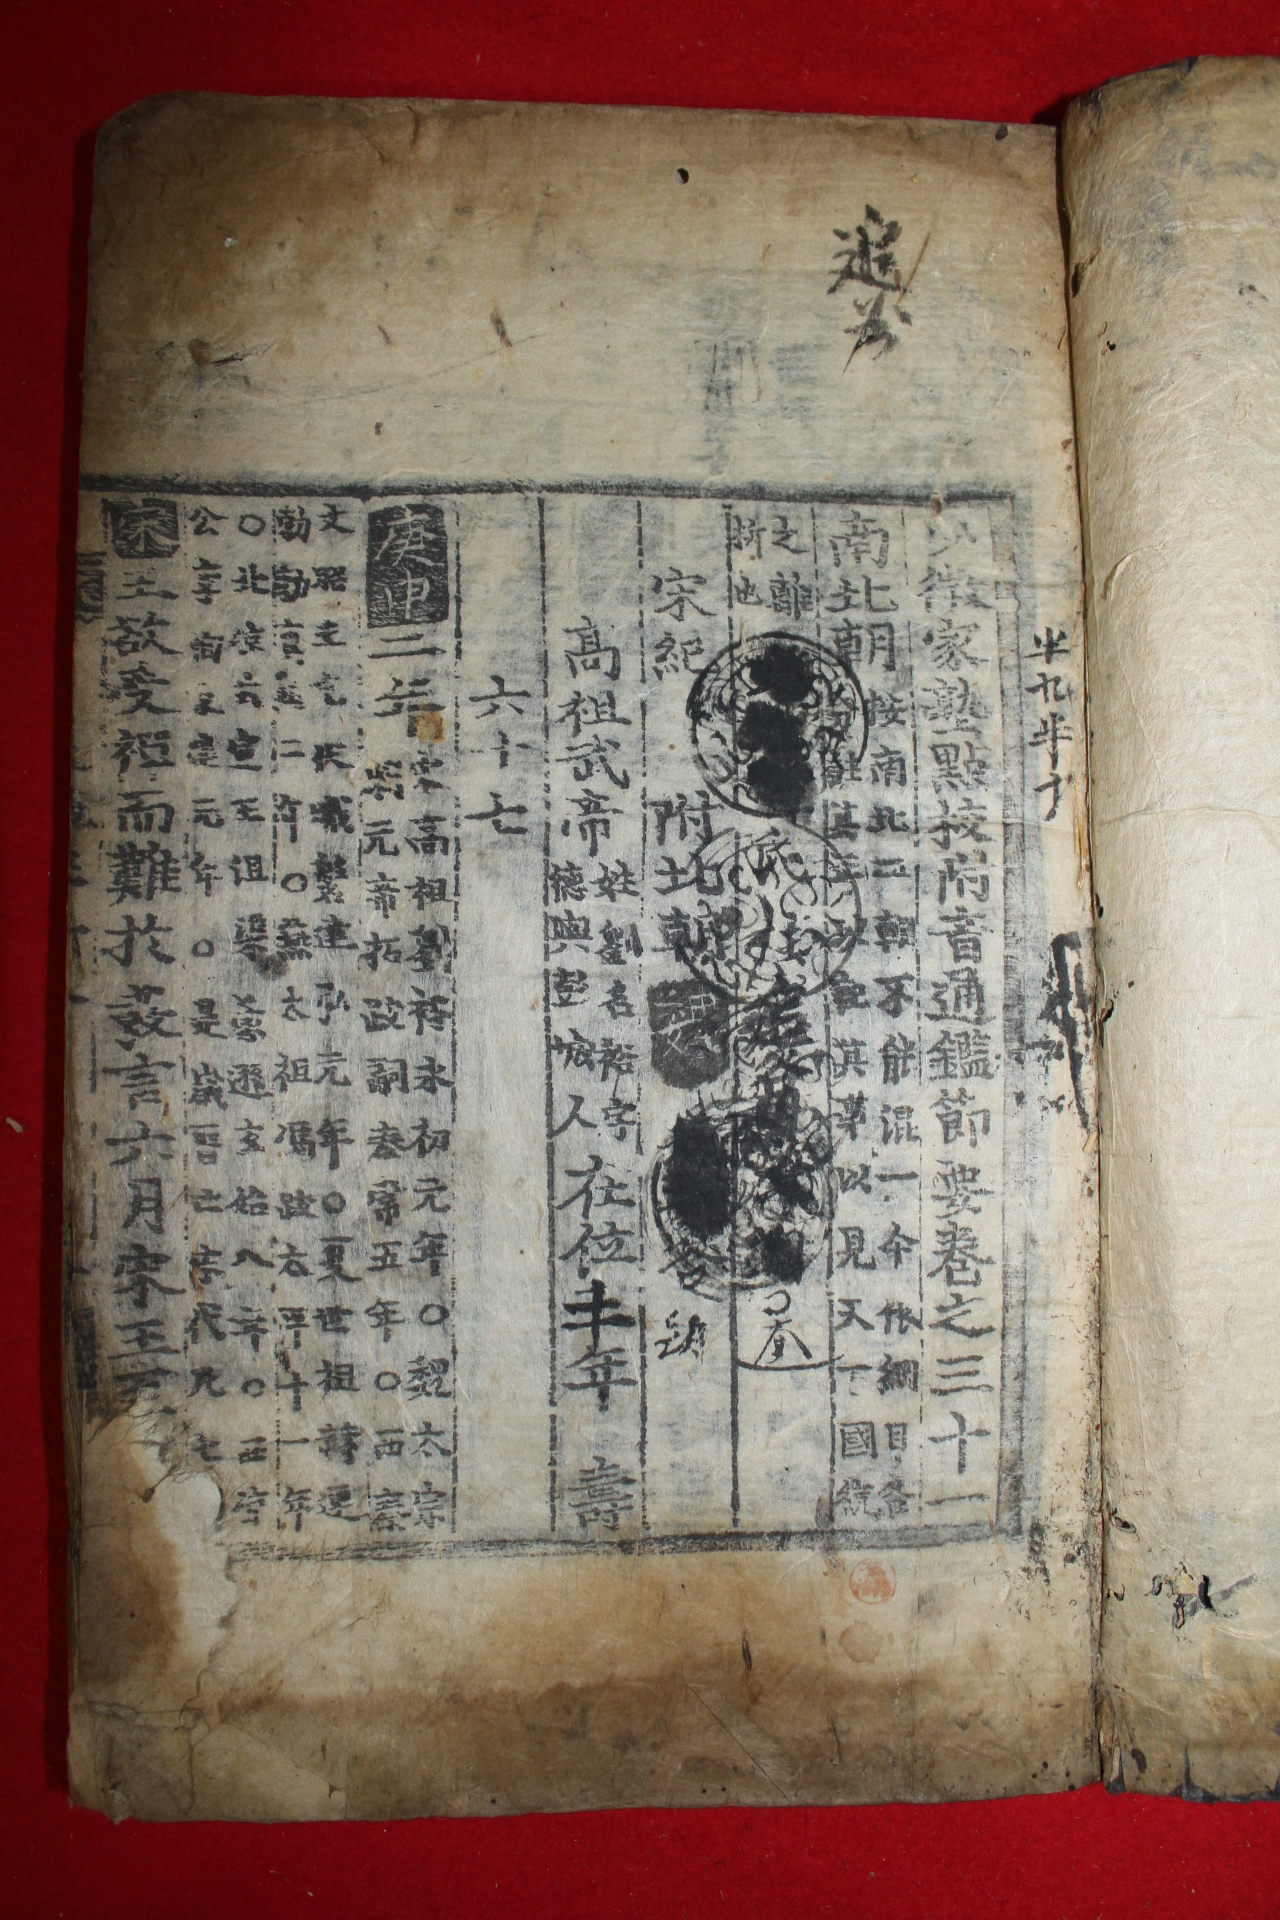 追
半九半十
少微家塾點挍附音通鑑節要卷之三十一
南北朝
按南北二朝不能混一今依綱目各
註其年號其事以見天下國統
之離
析也
宋紀 附北朝
高祖武帝
姓劉名裕字
德輿彭城人
在位三年 壽
六十七
庚申二年
宋高祖劉裕永初元年○魏太宗
明元帝拓跋嗣泰常五年○西秦
文昭王乞伏熾磐建弘元年○夏世祖赫連
勃勃真興二年○燕太祖馮跋太平十一年
○北涼武宣王沮渠蒙遜玄始八年○西涼
公李恂永建元年○是歲晉亡宋代凡七
宋王欲受禪而難於發言六月宋王至